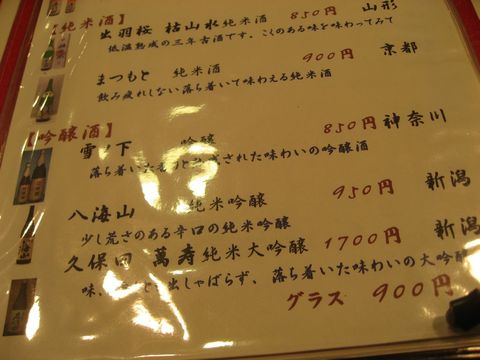 【純米酒】
出羽桜 枯山水 純米酒 850円 山形
低温熟成の三年古酒です。こくのある味を味わってみて
まつもと 純米酒 900円 京都
飲み疲れしない落ち着いて味わえる純米酒
【吟醸酒】
雪ノ下 吟醸 850円 神奈川
落ち着いた された味わいの吟醸酒
八海山 純米吟醸 950円 新潟
少し荒さのある辛口の純米吟醸
久保田 萬寿 純米大吟醸 1700円 新潟
味、 出しゃばらず、落ち着いた味わいの大吟醸
グラス 900円